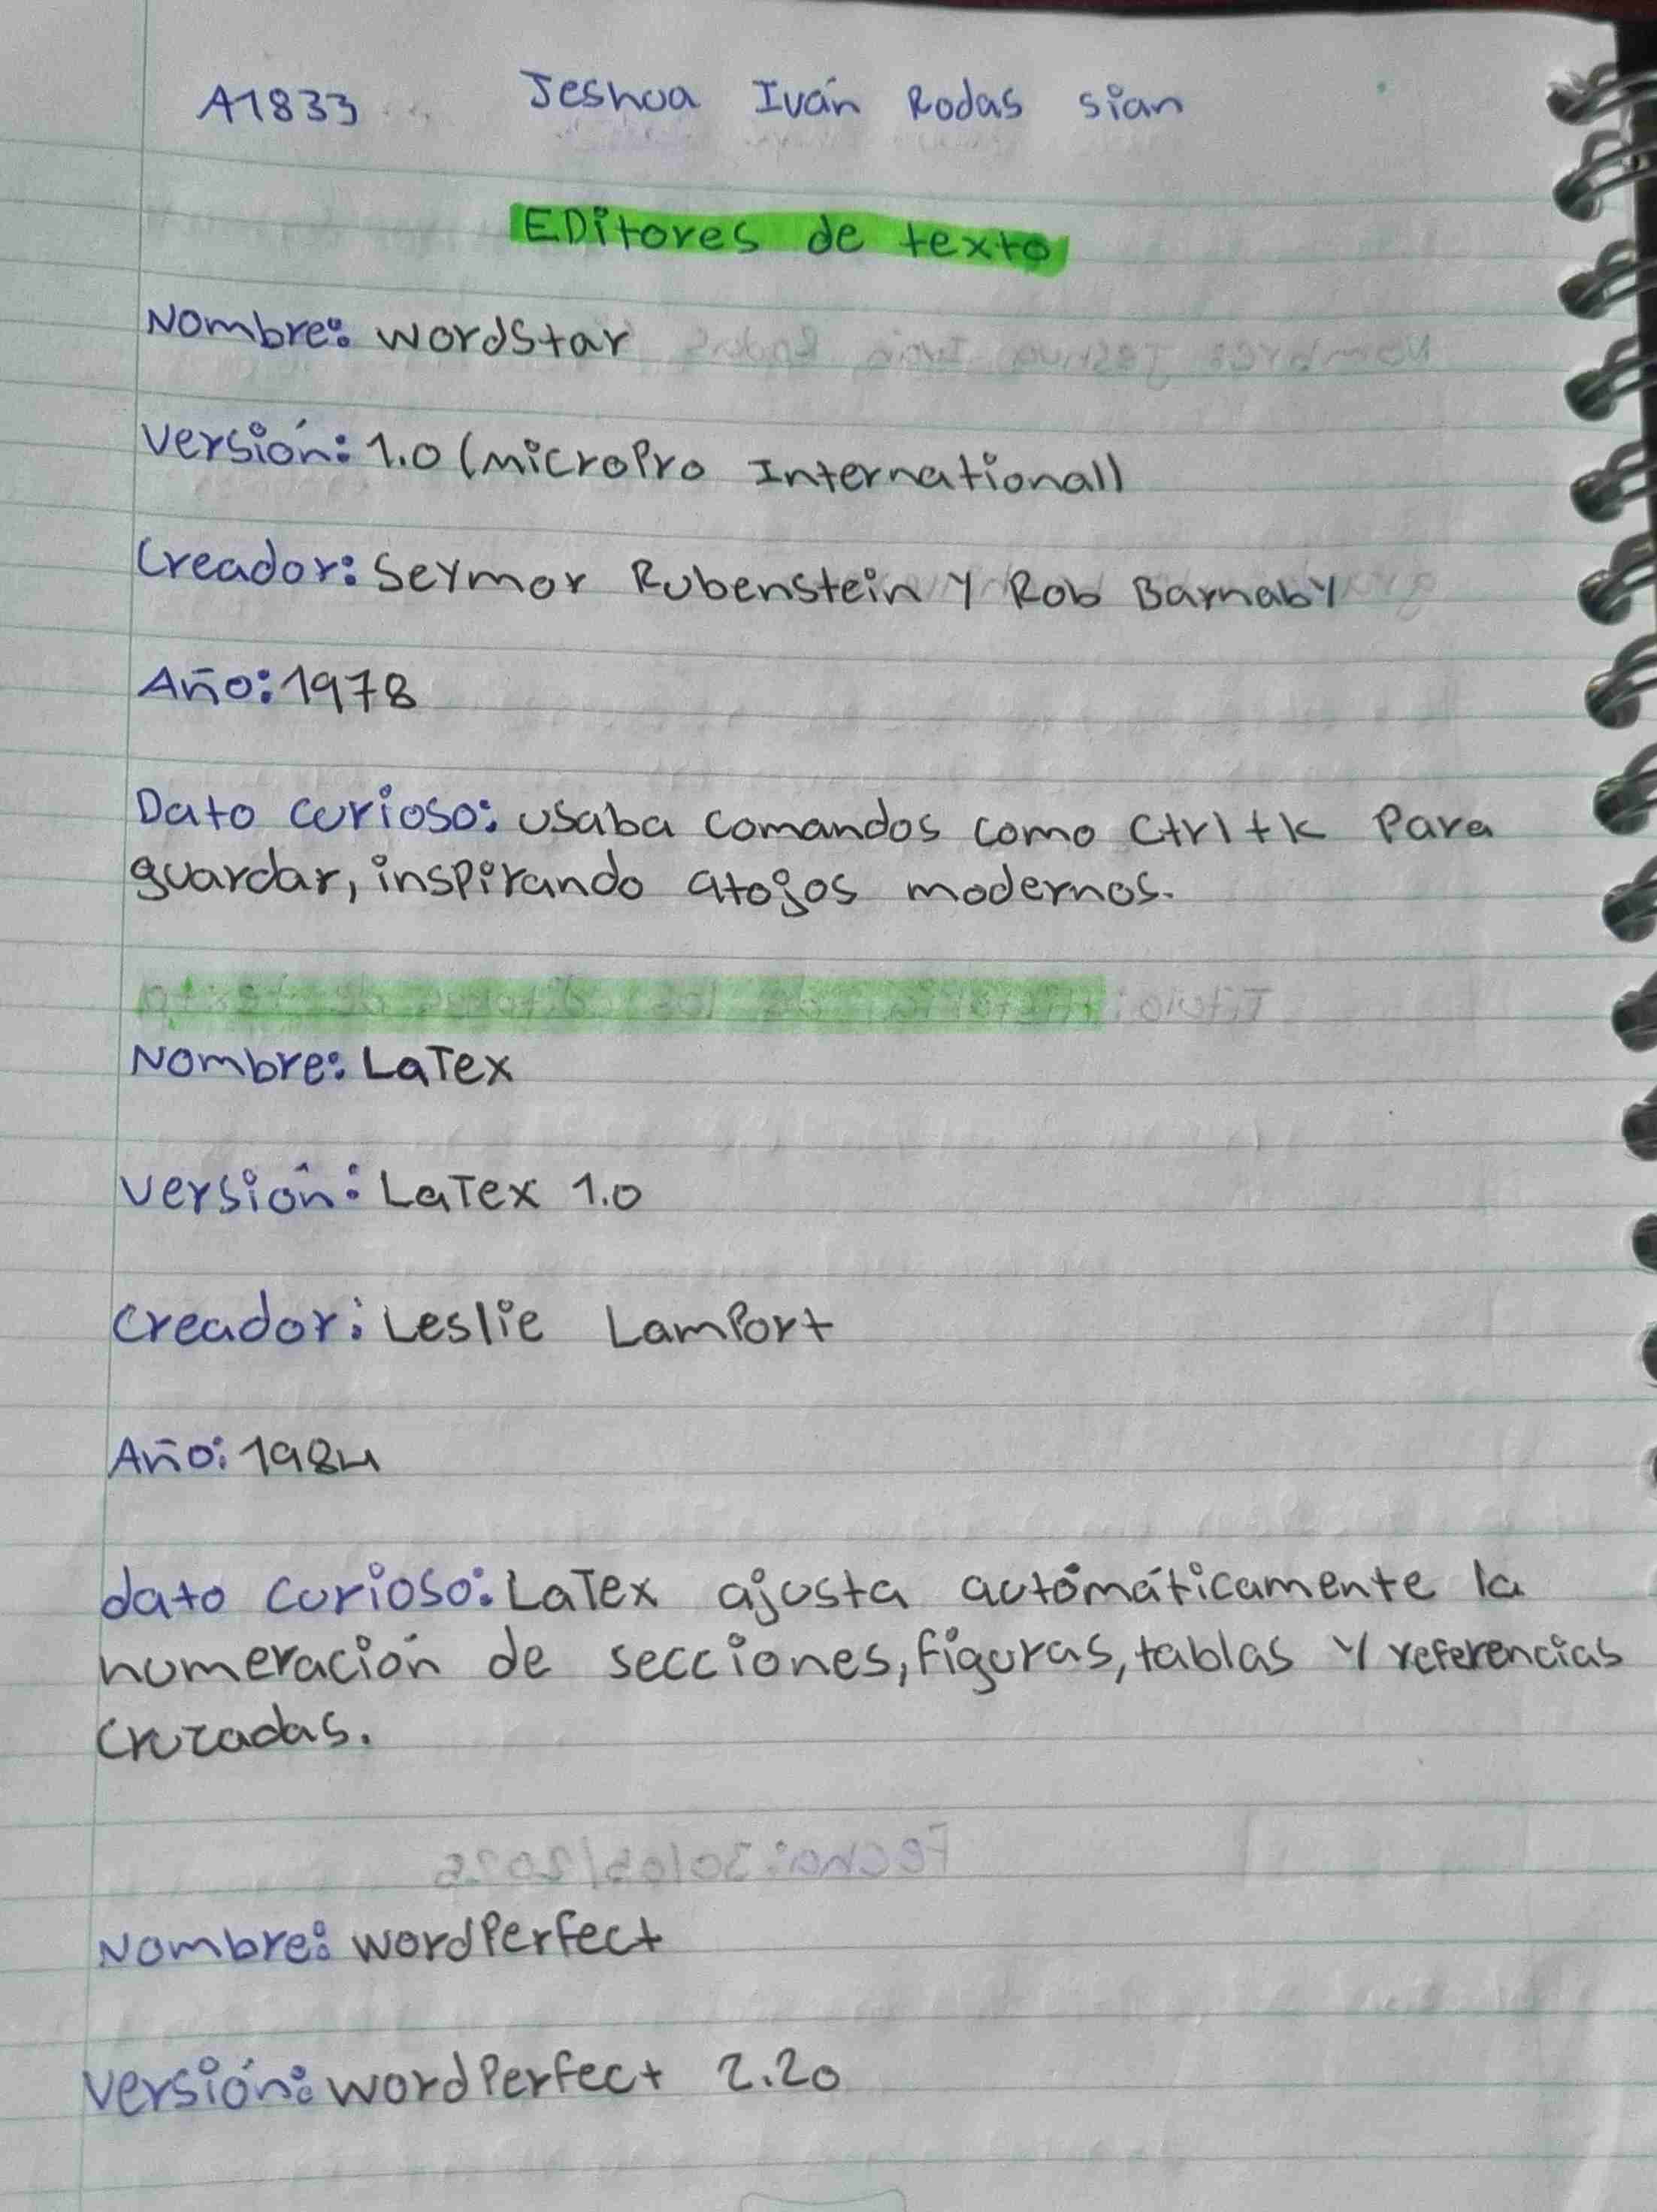 A1833 Jeshua Iván Rodas sian
EDitores de texto
Nombre: wordStar
Versión: 1.0 (MicroPro International)
Creador: Seymor Rubenstein Y Rob Barnaby
Año: 1978
Dato curioso: usaba comandos como Ctrl+k Para
guardar, inspirando atojos modernos.
Nombre: LaTex
Versión: LaTex 1.0
Creador: Leslie LamPort
Año: 1984
dato curioso: LaTex ajusta autómáticamente la
numeración de secciones, figuras, tablas Y referencias
cruzadas.
Nombre: wordPerfect
Versión: wordPerfect 2.20